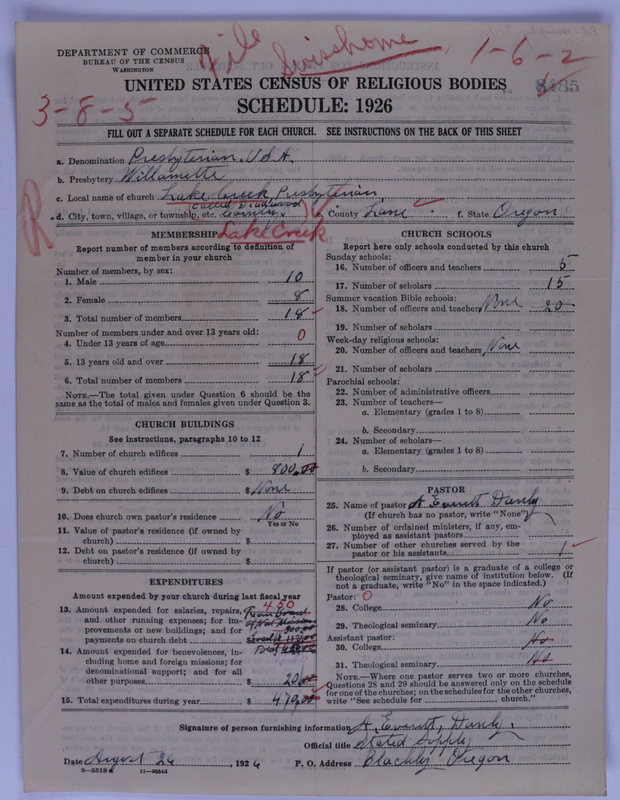 File Swisshome 1-6-2
DEPARTMENT OF COMMERCE
BUREAU OF THE CENSUS
WASHINGTON
3-8-5
UNITED STATES CENSUS OF RELIGIOUS BODIES
SCHEDULE: 1926
FILL OUT A SEPARATE SCHEDULE FOR EACH CHURCH. SEE INSTRUCTIONS ON THE BACK OF THIS SHEET
a. Denomination Presbyterian, U.S.A.
b. Presbytery Willamette
c. Local name of church Lake Creek Presbyterian
called Deadwood
d. City, town, village, or township, etc. Country. e. County Lane f. State Oregon
R
Lake Creek
MEMBERSHIP
Report number of members according to definition of
member in your church
Number of members, by sex:
1. Male 10
2. Female 8
3. Total number of members 18
Number of members under and over 13 years old:
4. Under 13 years of age 0
5. 13 years old and over 18
6. Total number of members 18
NOTE.—The total given under Question 6 should be the
same as the total of males and females given under Question 3.
CHURCH BUILDINGS
See instructions, paragraphs 10 to 12
7. Number of church edifices 1
8. Value of church edifices $ 800.00
9. Debt on church edifices $ None
10. Does church own pastor's residence No
Yes or No
11. Value of pastor's residence (if owned by
church) $
12. Debt on pastor's residence (if owned by
church) $
EXPENDITURES
Amount expended by your church during last fiscal year
450
13. Amount expended for salaries, repairs, From Board
and other running expenses; for im- of Nat Missions
provements or new buildings; and for
payments on church debt
14. Amount expended for benevolences, in-
cluding home and foreign missions; for
denominational support; and for all
other purposes $ 20.00
15. Total expenditures during year $ 470.00
CHURCH SCHOOLS
Report here only schools conducted by this church
Sunday schools:
16. Number of officers and teachers 5
17. Number of scholars 15
Summer vacation Bible schools:
18. Number of officers and teachers None 20
19. Number of scholars
Week-day religious schools:
20. Number of officers and teachers None
21. Number of scholars
Parochial schools:
22. Number of administrative officers
23. Number of teachers—
a. Elementary (grades 1 to 8)
b. Secondary
24. Number of scholars—
a. Elementary (grades 1 to 8)
b. Secondary
PASTOR
25. Name of pastor A Everett Danly
(If church has no pastor, write "None")
26. Number of ordained ministers, if any, em-
ployed as assistant pastors
27. Number of other churches served by the
pastor or his assistants 1
If pastor (or assistant pastor) is a graduate of a college or
theological seminary, give name of institution below. (If
not a graduate, write "No" in the space indicated.)
Pastor: 0
28. College No
29. Theological seminary No
Assistant pastor:
30. College No
31. Theological seminary No
NOTE.—Where one pastor serves two or more churches,
Questions 28 and 29 should be answered only on the schedule
for one of the churches; on the schedules for the other churches,
write "See schedule for church."
Signature of person furnishing information A. Everett, Danly.
Official title Stated supply
Date August 26, 1926 P. O. Address Blachly Oregon
8-5518a 11-9064d